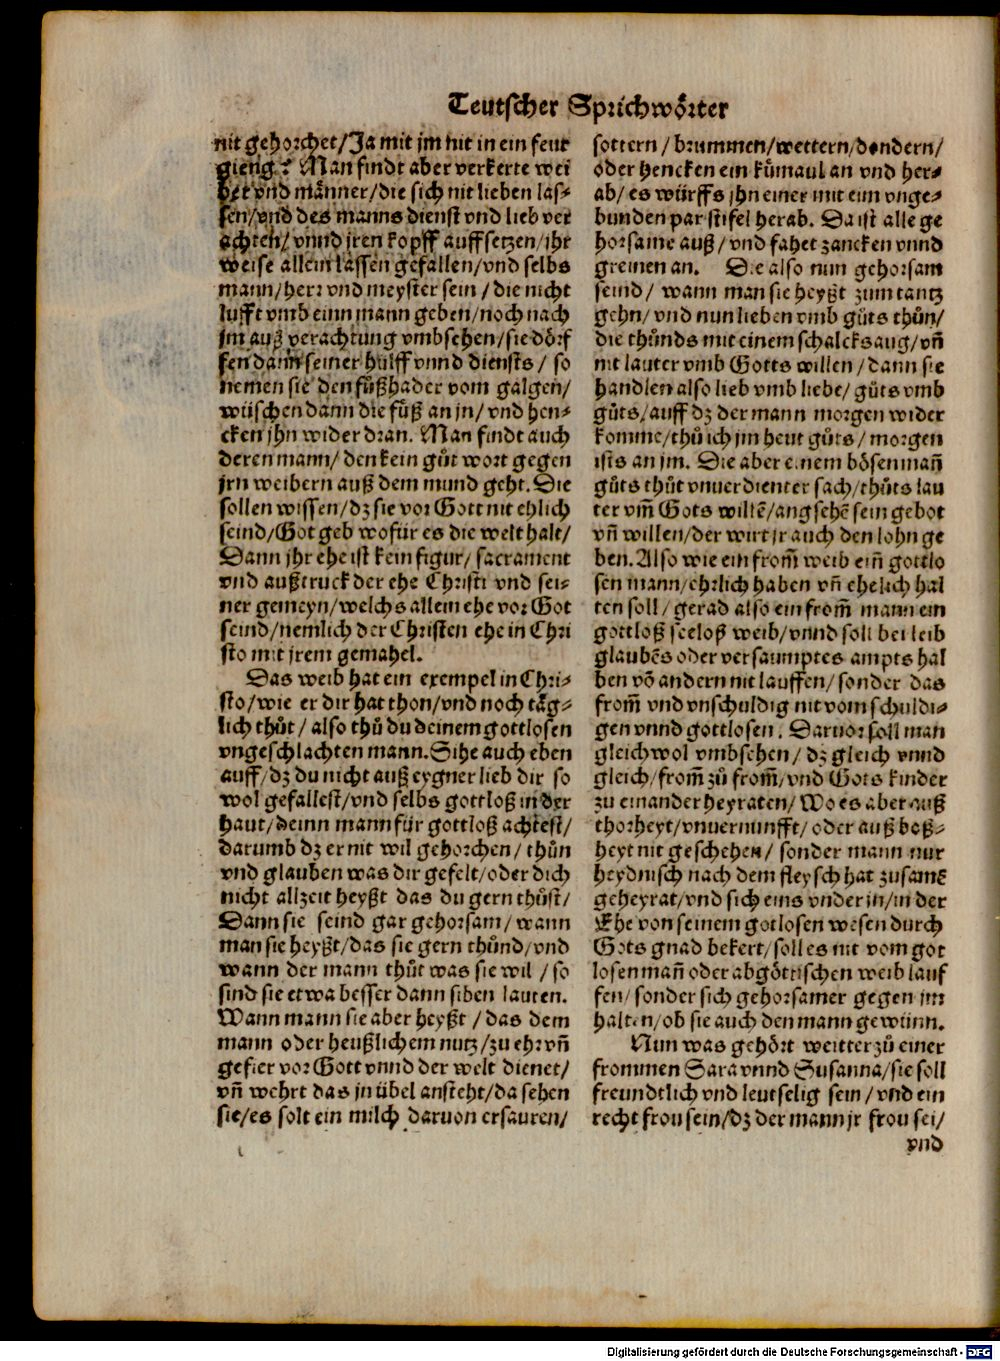 Teutscher Sprichwoͤrter
nit gehorchet/Ja mit jm nit in ein feur
gieng? Man findt aber verkerte wei
ber vnd maͤnner/die sich nit lieben las⸗
sen/vnd des manns dienst vnd lieb ver
achten/ vnnd jren kopff auffsetzen/jhr
weise allein lassen gefallen/vnd selbs
mann/herr vnd meyster sein / die nicht
lufft vmb einn mann geben/noch nach
jm auß verachtung vmbsehen/sie doͤrf
fen dann seiner huͤlff vnnd diensts/ so
nemen sie den fuͤßhader vom galgen/
wüschen dann die fuͤß an jn/ vnd hen⸗
cken jhn wider dran. Man findt auch
deren mann/ den kein guͦt wort gegen
jrn weibern auß dem mund geht. Die
sollen wissen/dz sie vor Gott nit ehlich
seind/Got geb wofür es die welt halt/
Dann jhr ehe ist kein figur/ sacrament
vnd außtruck der ehe Christi vnd sei⸗
ner gemeyn/welchs allein ehe vor Got
seind/nemlich der Christen ehe in Chri
sto mit jrem gemahel.
Das weib hat ein exempel in Chri⸗
sto/wie er dir hat thon/vnd noch taͤg⸗
lich thuͦt/ also thuͦ du deinem gottlosen
vngeschlachten mann. Sihe auch eben
auff/dz du nicht auß eygner lieb dir so
wol gefallest/vnd selbs gottloß in der
haut/deinn mann für gottloß achtest/
darumb dz er nit wil gehorchen/ thuͦn
vnd glauben was dir gefelt/oder dich
nicht allzeit heyßt das du gern thuͦst/
Dann sie seind gar gehorsam/ wann
man sie heyßt/das sie gern thuͦnd/vnd
wann der mann thuͦt was sie wil / so
sind sie etwa besser dann siben lauten.
Wann mann sie aber heyßt / das dem
mann oder heußlichem nutz/zu ehr vñ
gefier vor Gott vnnd der welt dienet/
vñ wehrt das jn übel ansteht/da sehen
sie/es solt ein milch daruon ersauren/
sottern / brummen/wettern/dondern/
oder hencken ein kuͤmaul an vnd her⸗
ab/ es würffs jhn einer mit eim vnge⸗
bunden par stifel herab. Da ist alle ge
horsame auß/ vnd fahet zancken vnnd
greinen an. Die also nun gehorsam
seind/ wann man sie heyßt zum tantz
gehn/ vnd nun lieben vmb guͦts thuͦn/
die thuͦnds mit einem schalcksaug/ vñ
nit lauter vmb Gotts willen / dann sie
handlen also lieb vmb liebe/ guͦts vmb
guͦts/auff dz der mann morgen wider
komme/thuͦ ich jm heut guͦts/ morgen
ists an jm. Die aber einem boͤsen mañ
guͦts thuͦt vnuerdienter sach/thuͦts lau
ter vm̃ Gots willẽ/angsehẽ sein gebot
vñ willen/der wirt jr auch den lohn ge
ben. Also wie ein from̃ weib eiñ gottlo
sen mann/ehrlich haben vñ ehelich hal
ten soll/ gerad also ein from̃ mann ein
gottloß seeloß weib/vnnd soll bei leib
glaubẽs oder versaumptes ampts hal
ben võ andern nit lauffen/ sonder das
from̃ vnd vnschuldig nit vom schuldi⸗
gen vnnd gottlosen. Daruor soll man
gleichwol vmbsehen/ dz gleich vnnd
gleich/from̃ zuͦ from̃/vnd Gots kinder
zu einander heyraten/ Wo es aber auß
thorheyt/vnuernunfft/ oder auß boß⸗
heyt nit geschehen/ sonder mann nur
heydnisch nach dem fleysch hat zusamẽ
geheyrat/vnd sich eins vnder jn/in der
Ehe von seinem gotlosen wesen durch
Gots gnad bekert/ soll es nit vom got
losen mañ oder abgoͤttischen weib lauf
fen/ sonder sich gehorsamer gegen jm
halten/ob sie auch den mann gewünn.
Nun was gehoͤrt weitter zuͦ einer
frommen Sara vnnd Susanna/sie soll
freundtlich vnd leutselig sein/ vnd ein
recht frou sein/dz der mann jr frou sei/
vnd
Digitalisierung gefördert durch die Deutsche Forschungsgemeinschaft - DFG